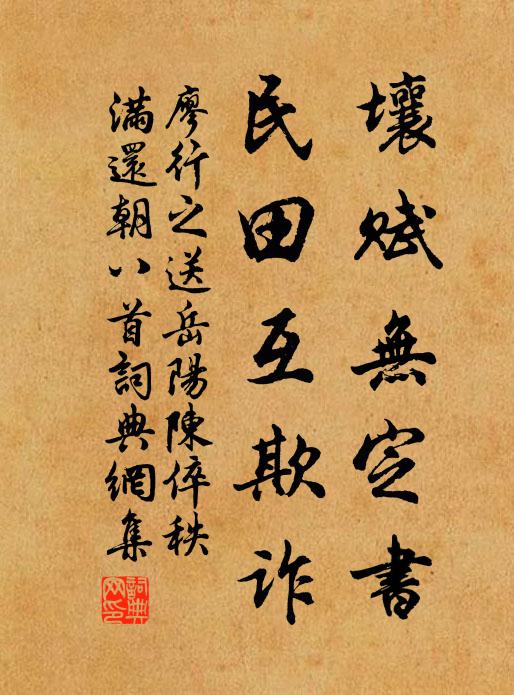 壤賦無定書
民田互欺詐
廖行之送岳陽陳倅秩
滿還朝八首詞典網集
詞典网印